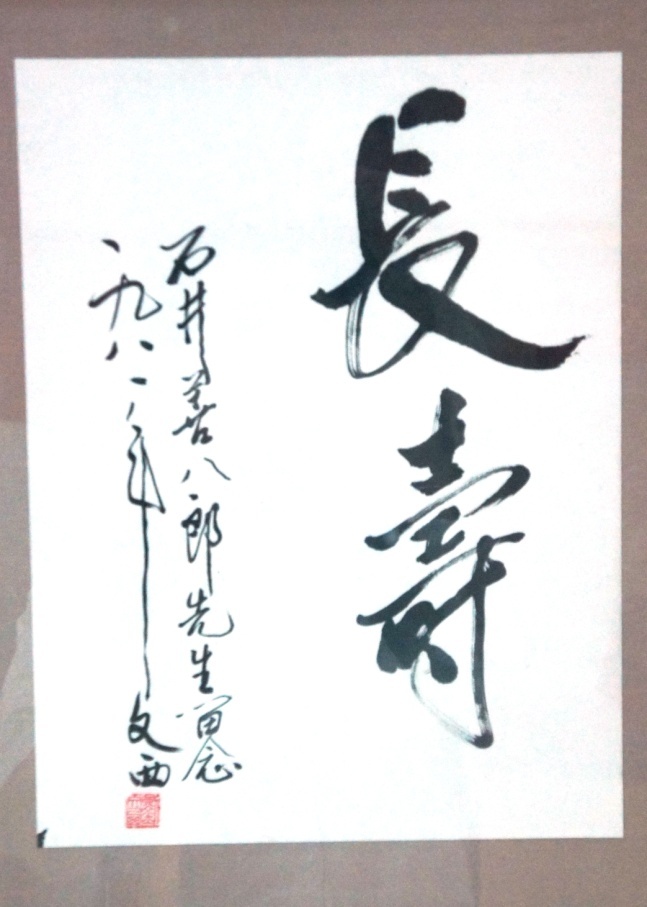 長壽
石井善八郎先生留念
一九八一年 文西